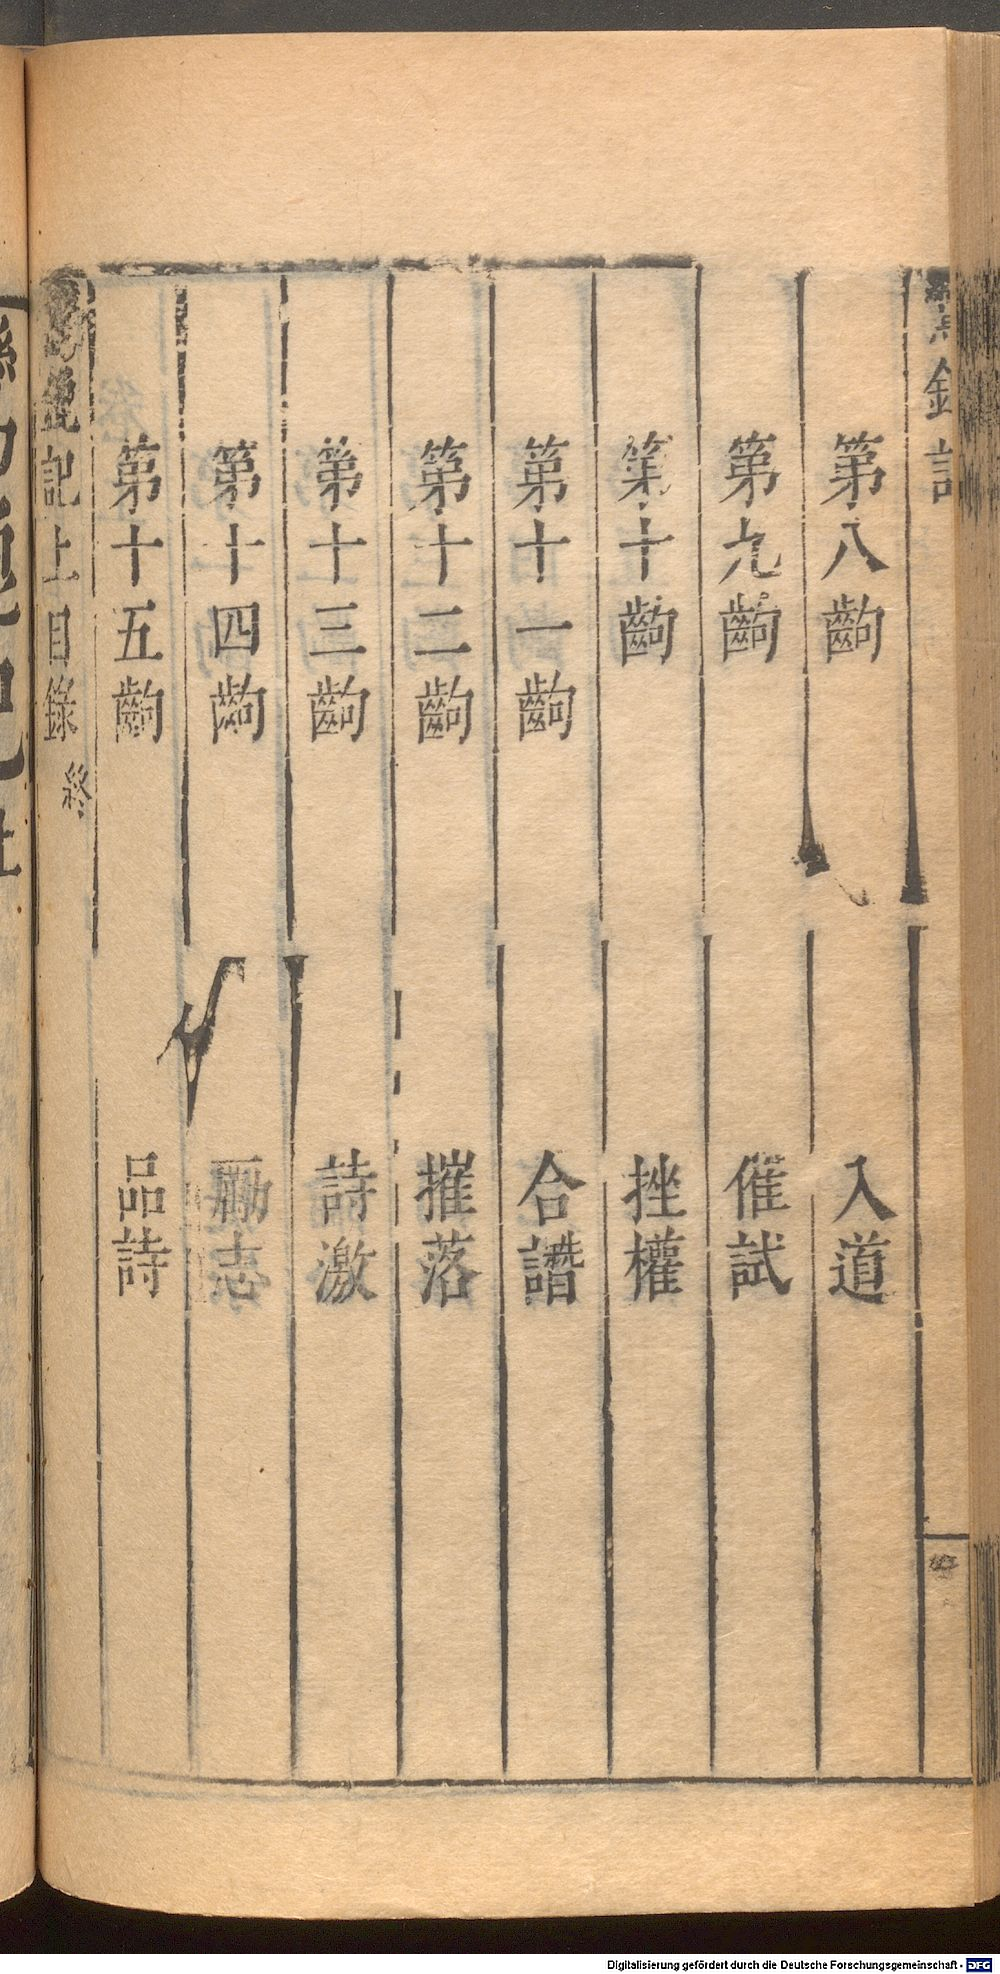 第八齣 入道
第九齣 催試
第十齣 挫權
第十一齣 合譖
第十二齣 摧落
第十三齣 詩激
第十四齣 勵志
第十五齣 品詩
記上目錄終
Digitalisierung gefördert durch die Deutsche Forschungsgemeinschaft - DFG